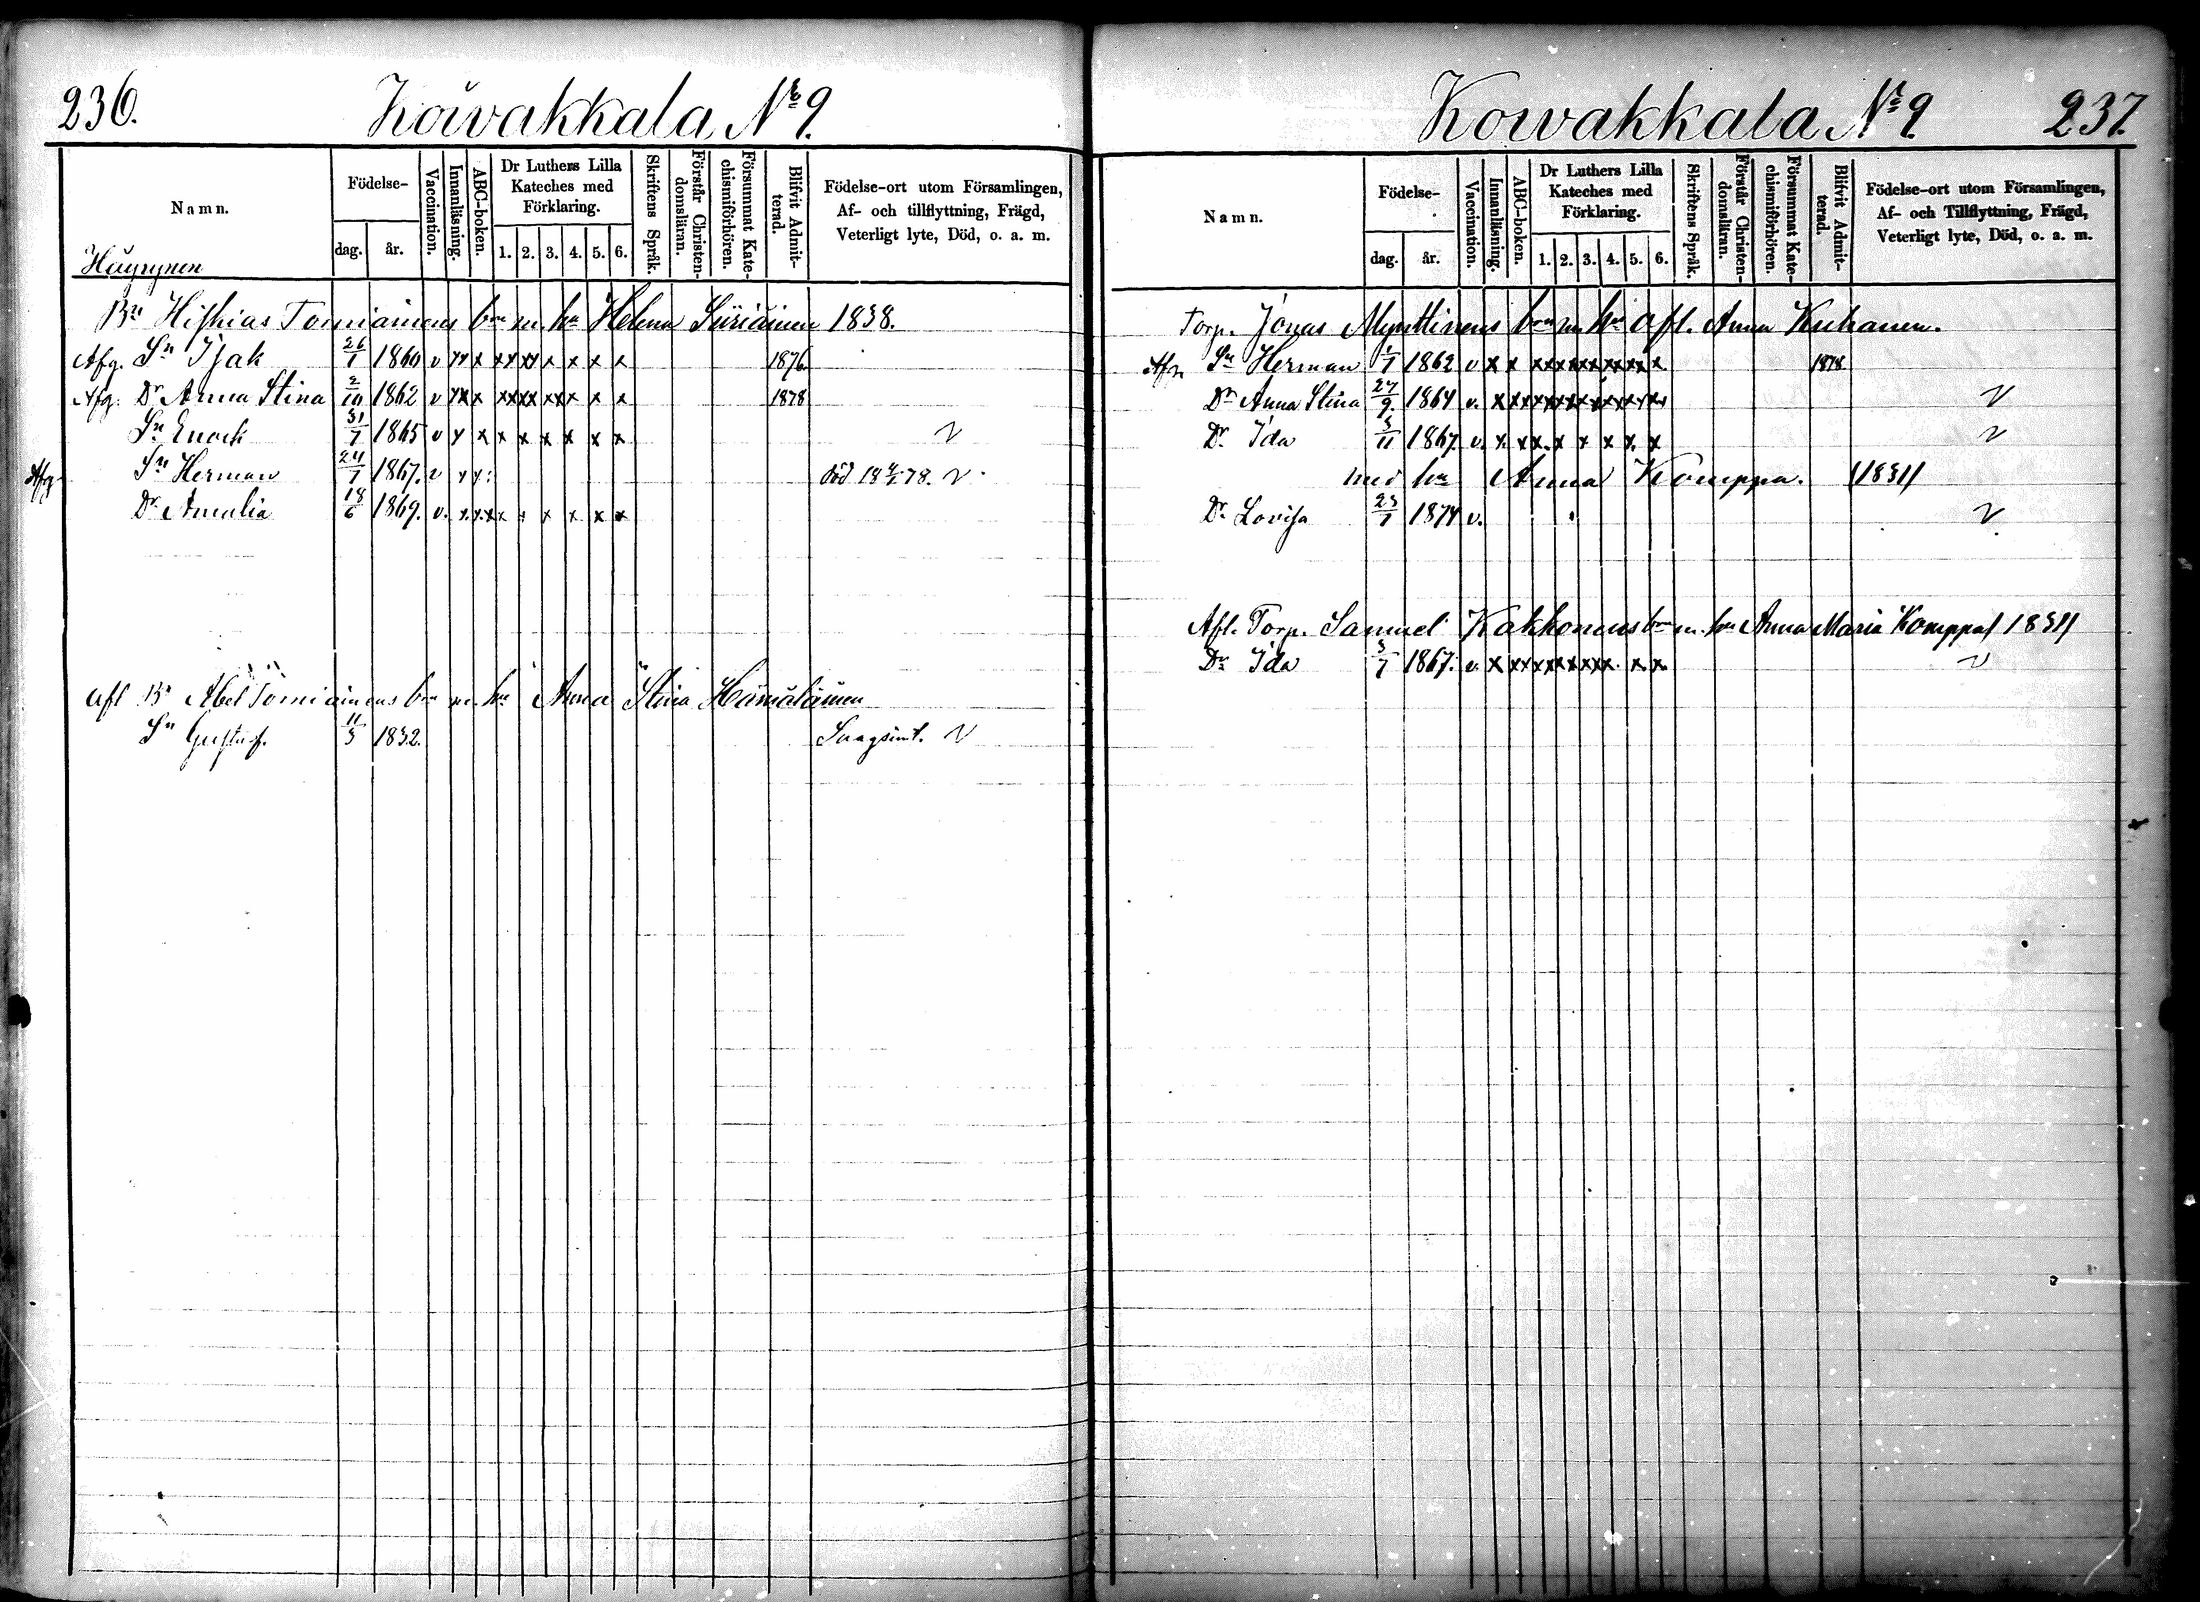 236. Koivakkala No 9.
Namn. Födelse- dag. år. Vaccination. Innanläsning. ABC-boken. Dr Luthers Lilla Kateches med Förklaring. 1. 2. 3. 4. 5. 6. Skriftens Språk. Förstår Christendomsläran. Försummat Katechismiförhören. Blifvit Admitterad. Födelse-ort utom Församlingen, Af- och tillflyttning, Frägd, Veterligt lyte, Död, o. a. m.
Häyrynen
Bn Hiskias Tomiainens bn m. hu Helena Siiriäinen 1838.
Afg. Sn Isak 26/1 1860 v yy x xy xy x x x x 1876.
Afg. Dr Anna Stina 2/10 1862 v yx x xx xx xx x x x 1878
Sn Enock 31/7 1865 v y x x x x x x x
Afg. Sn Herman 24/7 1867. v y y. död 18 4/5 78.
Dr Amalia 18/6 1869. v. x x x x x x x x x
Afl Bn Abel Tomiainens bn m. hu Anna Stina Hämäläinen
Sn Gustaf. 11/3 1832.
Koivakkala No 9. 237.
Namn. Födelse- dag. år. Vaccination. Innanläsning. ABC-boken. Dr Luthers Lilla Kateches med Förklaring. 1. 2. 3. 4. 5. 6. Skriftens Språk. Förstår Christendomsläran. Försummat Katechismiförhören. Blifvit Admitterad. Födelse-ort utom Församlingen, Af- och Tillflyttning, Frägd, Veterligt lyte, Död, o. a. m.
Torp. Jonas Mynttinens bn m hu afl. Anna Kuhanen.
Sn Herman 1/7 1862 v x x xx xx xx xx xx x 1878
Dr Anna Stina 27/9. 1864 v. x xx xx xx xx xx xx xx
Dr Ida 3/11 1867. v. x. xx x x x x x. x
med hu Anna Komppa. /1831/
Dr Lovisa 23/7 1874 v.
Afl. Torp. Samuel Kakkonens bn m. hu Anna Maria Komppa /1831/
Dr Ida 3/7 1867. v. x xx xx xx xx xx. x. x.